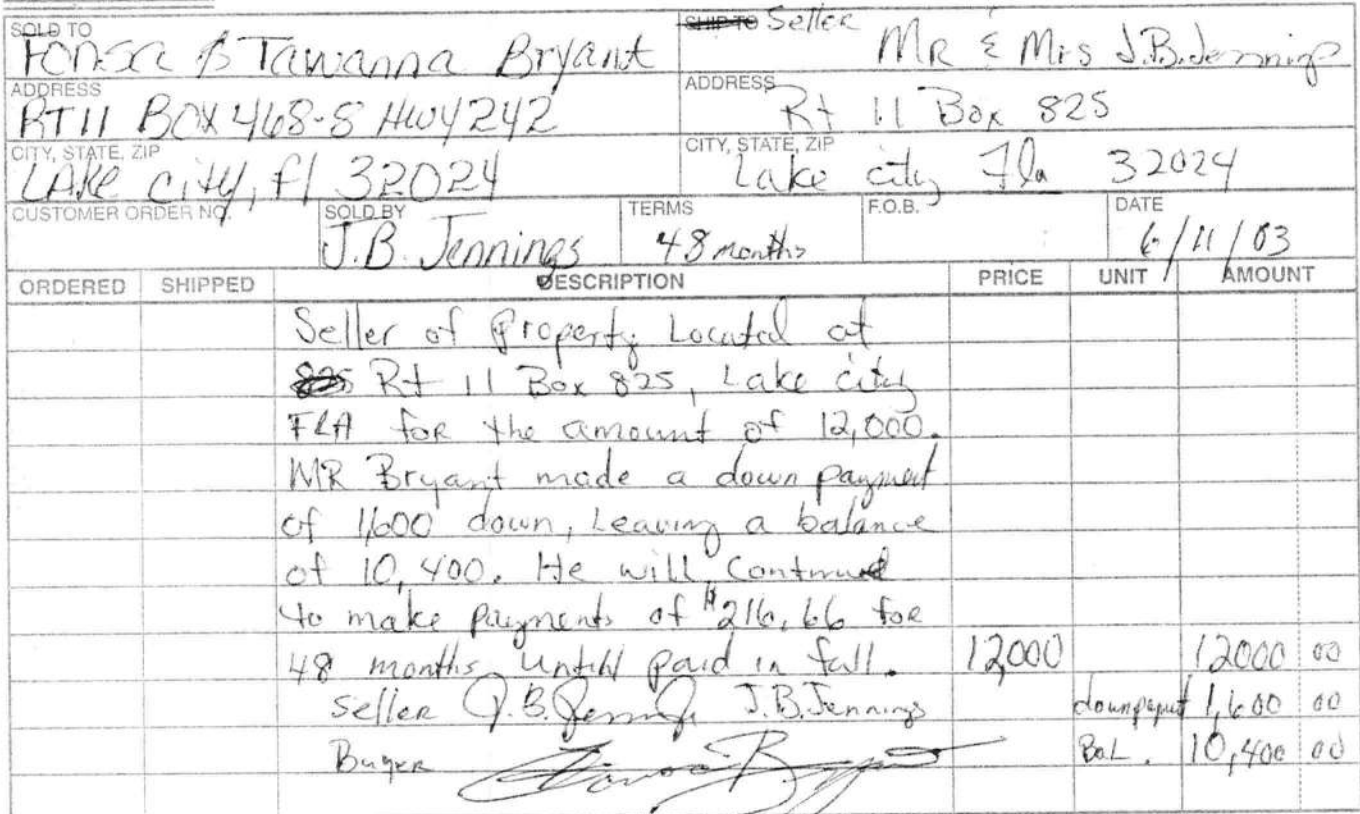 SOLD TO
Fonsca & Tawanna Bryant
SHIP TO Seller
Mr & Mrs J.B. Jennings
ADDRESS
RT 11 BOX 468-S HWY 242
ADDRESS
Rt 11 Box 825
CITY, STATE, ZIP
LAKE city, fl 32024
CITY, STATE, ZIP
Lake city Fla 32024
CUSTOMER ORDER NO.
SOLD BY
J.B. Jennings
TERMS
48 months
F.O.B.
DATE
6/11/03
ORDERED SHIPPED DESCRIPTION PRICE UNIT AMOUNT
Seller of Property Located at
Rt 11 Box 825, Lake city
FLA for the amount of 12,000.
MR Bryant made a down payment
of 1,600 down, Leaving a balance
of 10,400. He will Continue
to make payments of $216.66 for
48 months Untill paid in full. 12,000 12000 00
Seller J.B. Jennings J.B. Jennings downpaymt 1,600 00
Buyer Bal. 10,400 00